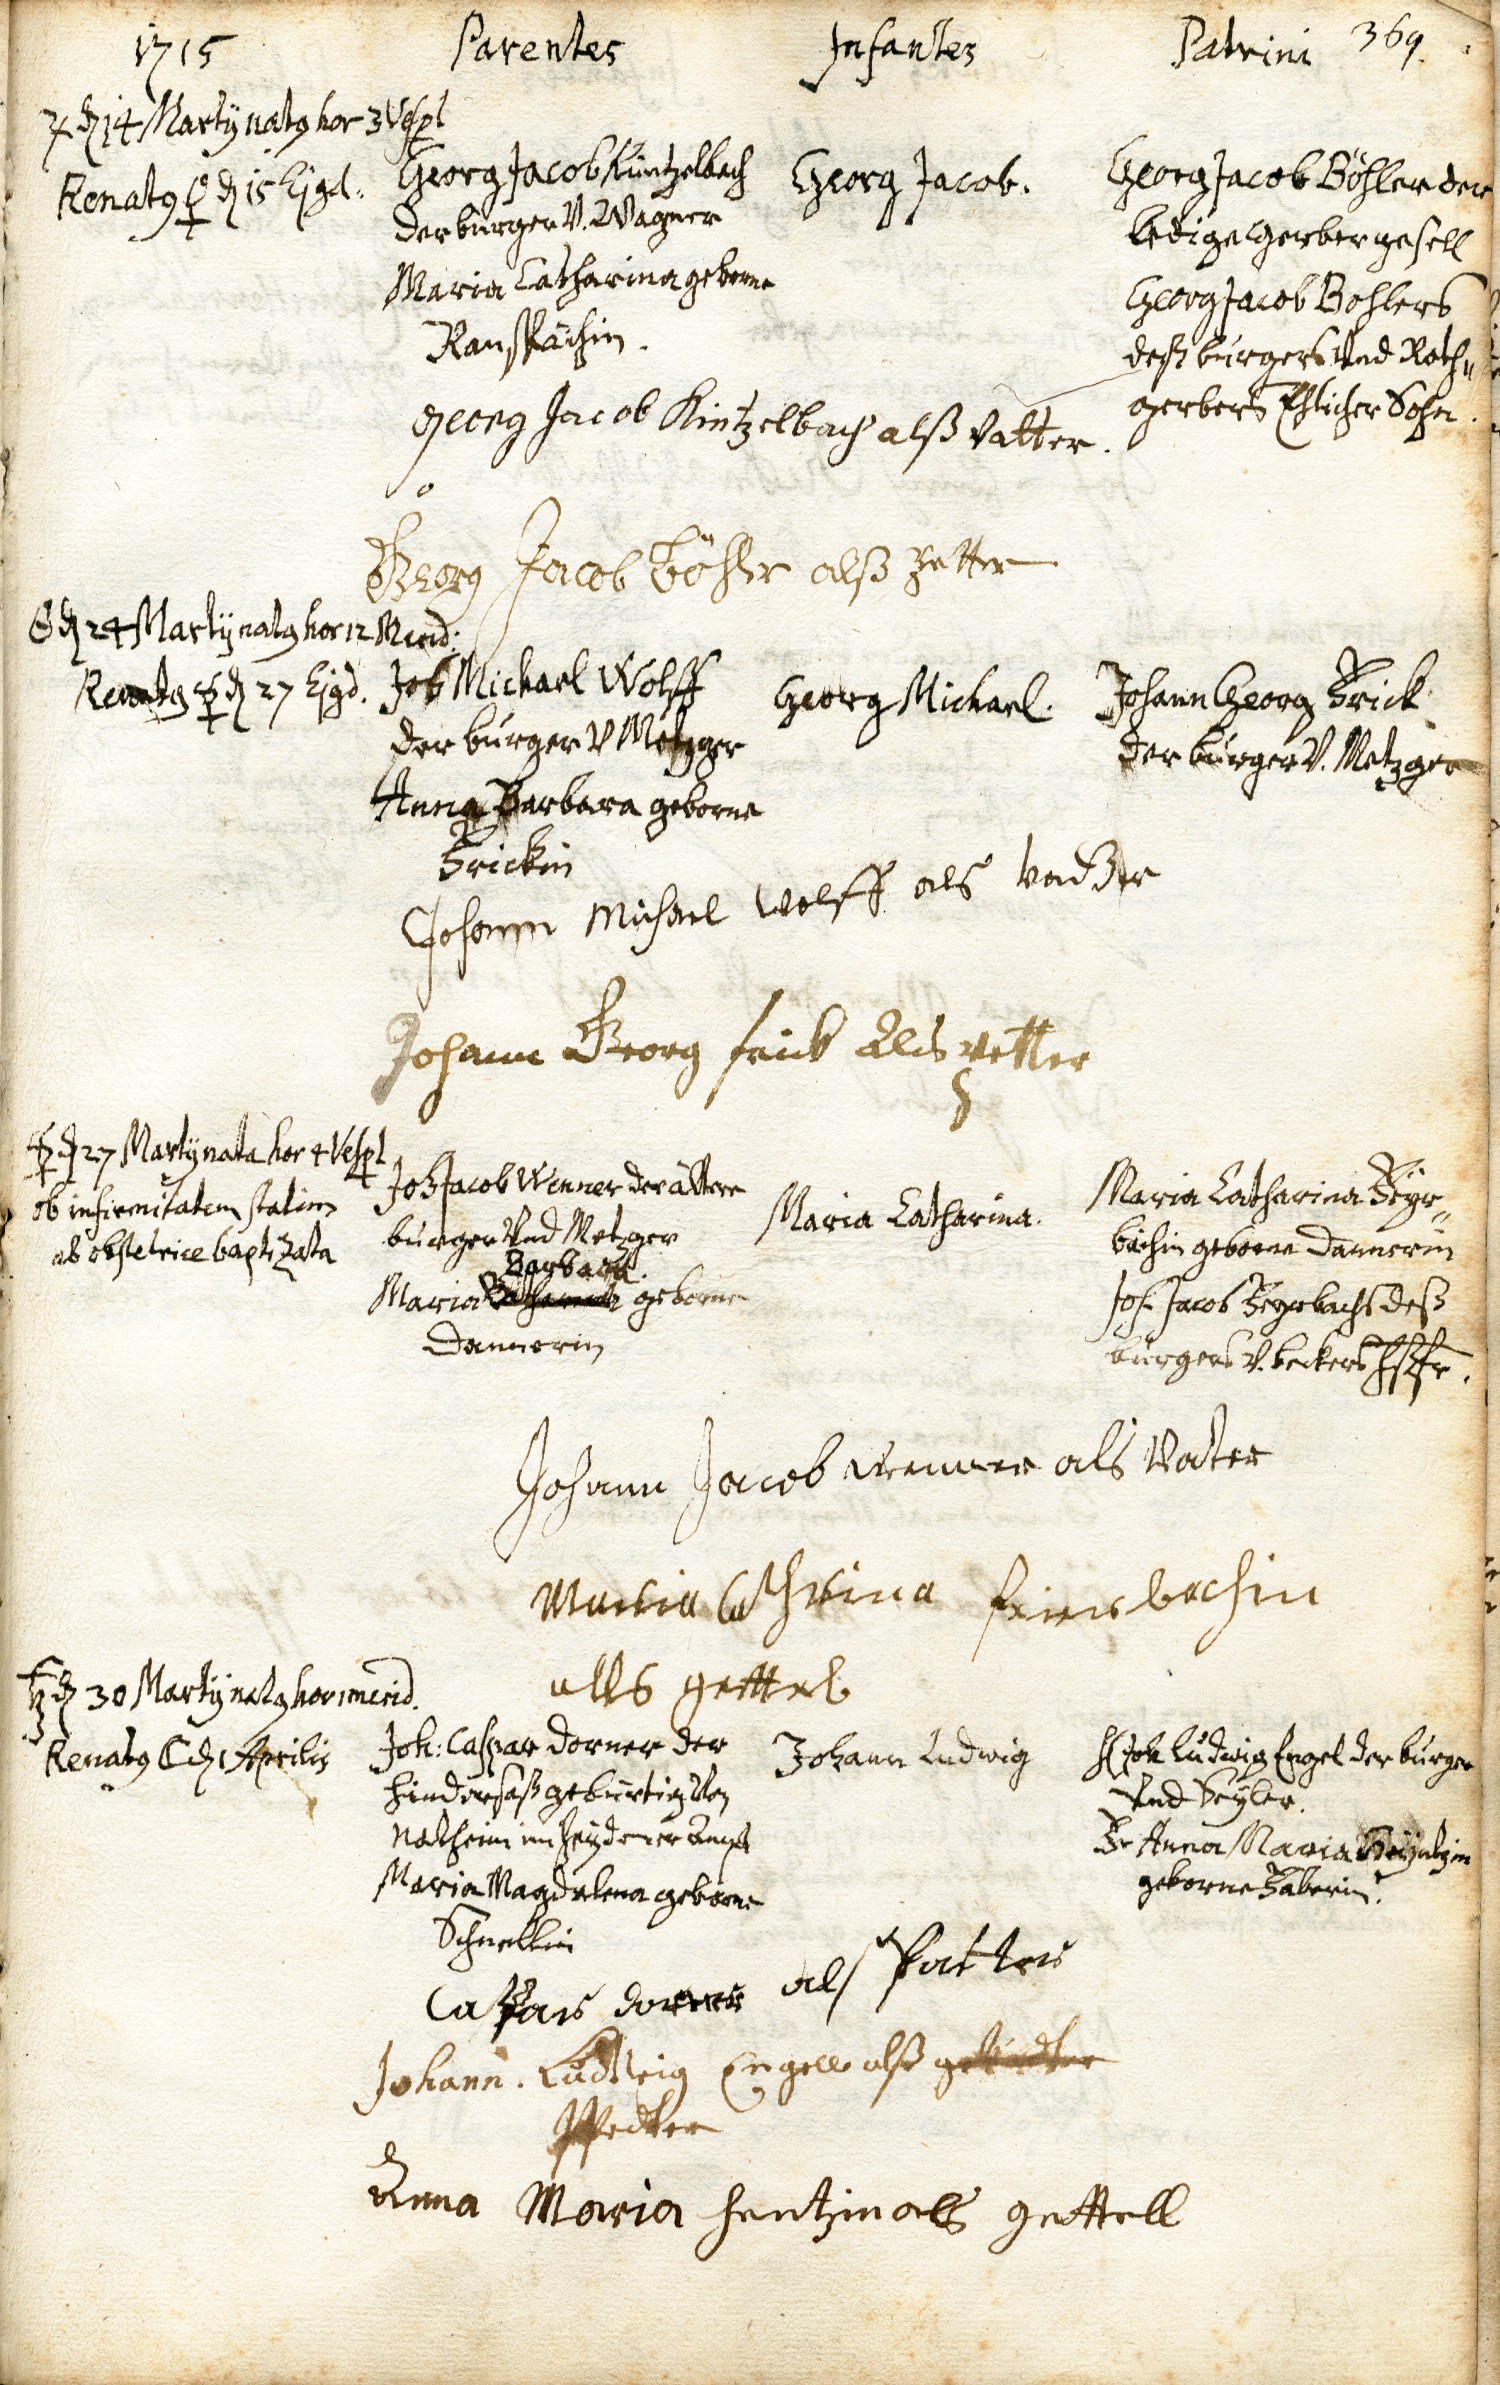 1715 Parentes Infantes Patrini 369.
♃ d 14 Martÿ nat9 hor 3 Vesp
Renat9 ♀ d 15 Ejsd.
Georg Jacob Küntzelbach
der burger V. Wagner
Maria Catharina geborne
Ranspächin.
Georg Jacob.
Georg Jacob Böhler der
ledige Gerbergesell
Georg Jacob Bohlers
deß burgers Und Roth„
gerbers Ehlicher Sohn.
georg Jacob Kintzelbach alß Vatter.
Georg Jacob Böhler alß getter
☉ d 24 Martÿ nat9 hor 12 Merid:
Renat9 ☿ d 27 Ejsd.
Joh Michael Wolff
der burger V Metzger
Anna Barbara geborne
Frickin
Georg Michael.
Johann Georg Frick
der burger V. Metzger
Johann Michael Wolff als vadter
Johann Georg frick als vetter
☿ d 27 Martÿ nata hor 4 Vesp
ob infirmitatem statim
ab obstetrice baptizata
Joh Jacob Wenner der ältere
burger Und Metzger
Barbara
Maria Catharina geborne
Dannerin
Maria Catharina.
Maria Catharina Feyr„
bächin geborne Dannerin
Joh. Jacob Feyrbachs deß
burgers V. beckers Hßfr.
Johann Jacob wenner als Vater
Maria Cathrina feierbachin
alls gettel
♄ d 30 Martÿ nat9 hor 1 merid.
Renat9 ☾ d 1 Aprilis
Joh: Caspar Dorner der
hindersaß gebürtig Von
Natheim im Heydemer ampt
Maria Magdalena geborne
Schnellin
Johann Ludwig
H Joh Ludwig Engel der burger
Und Seyler.
Fr Anna Maria Heyntzin
geborne Faberin.
Caspar dorner als Vatter
Johann. Ludwig Engell alß
Anna Maria hentzin als gettell